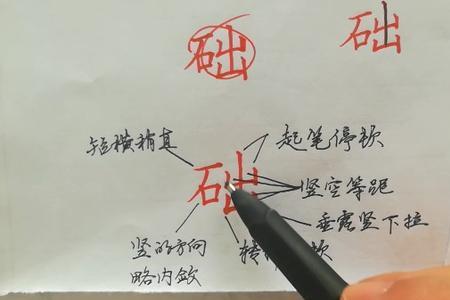 础
础
短横稍直
起笔停顿
础
竖空等距
垂露竖下拉
竖的方向
略内敛